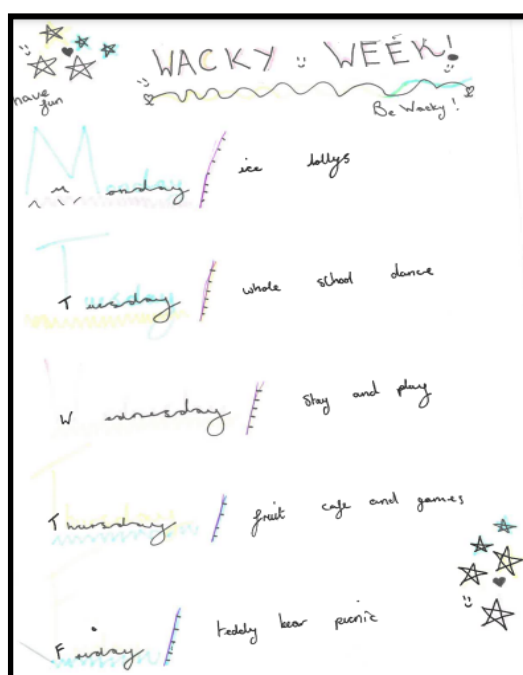 WACKY WEEK!
have
fun
Be Wacky!
Monday ice lollys
Tuesday whole school dance
Wednesday stay and play
Thursday fruit cafe and games
Friday teddy bear picnic